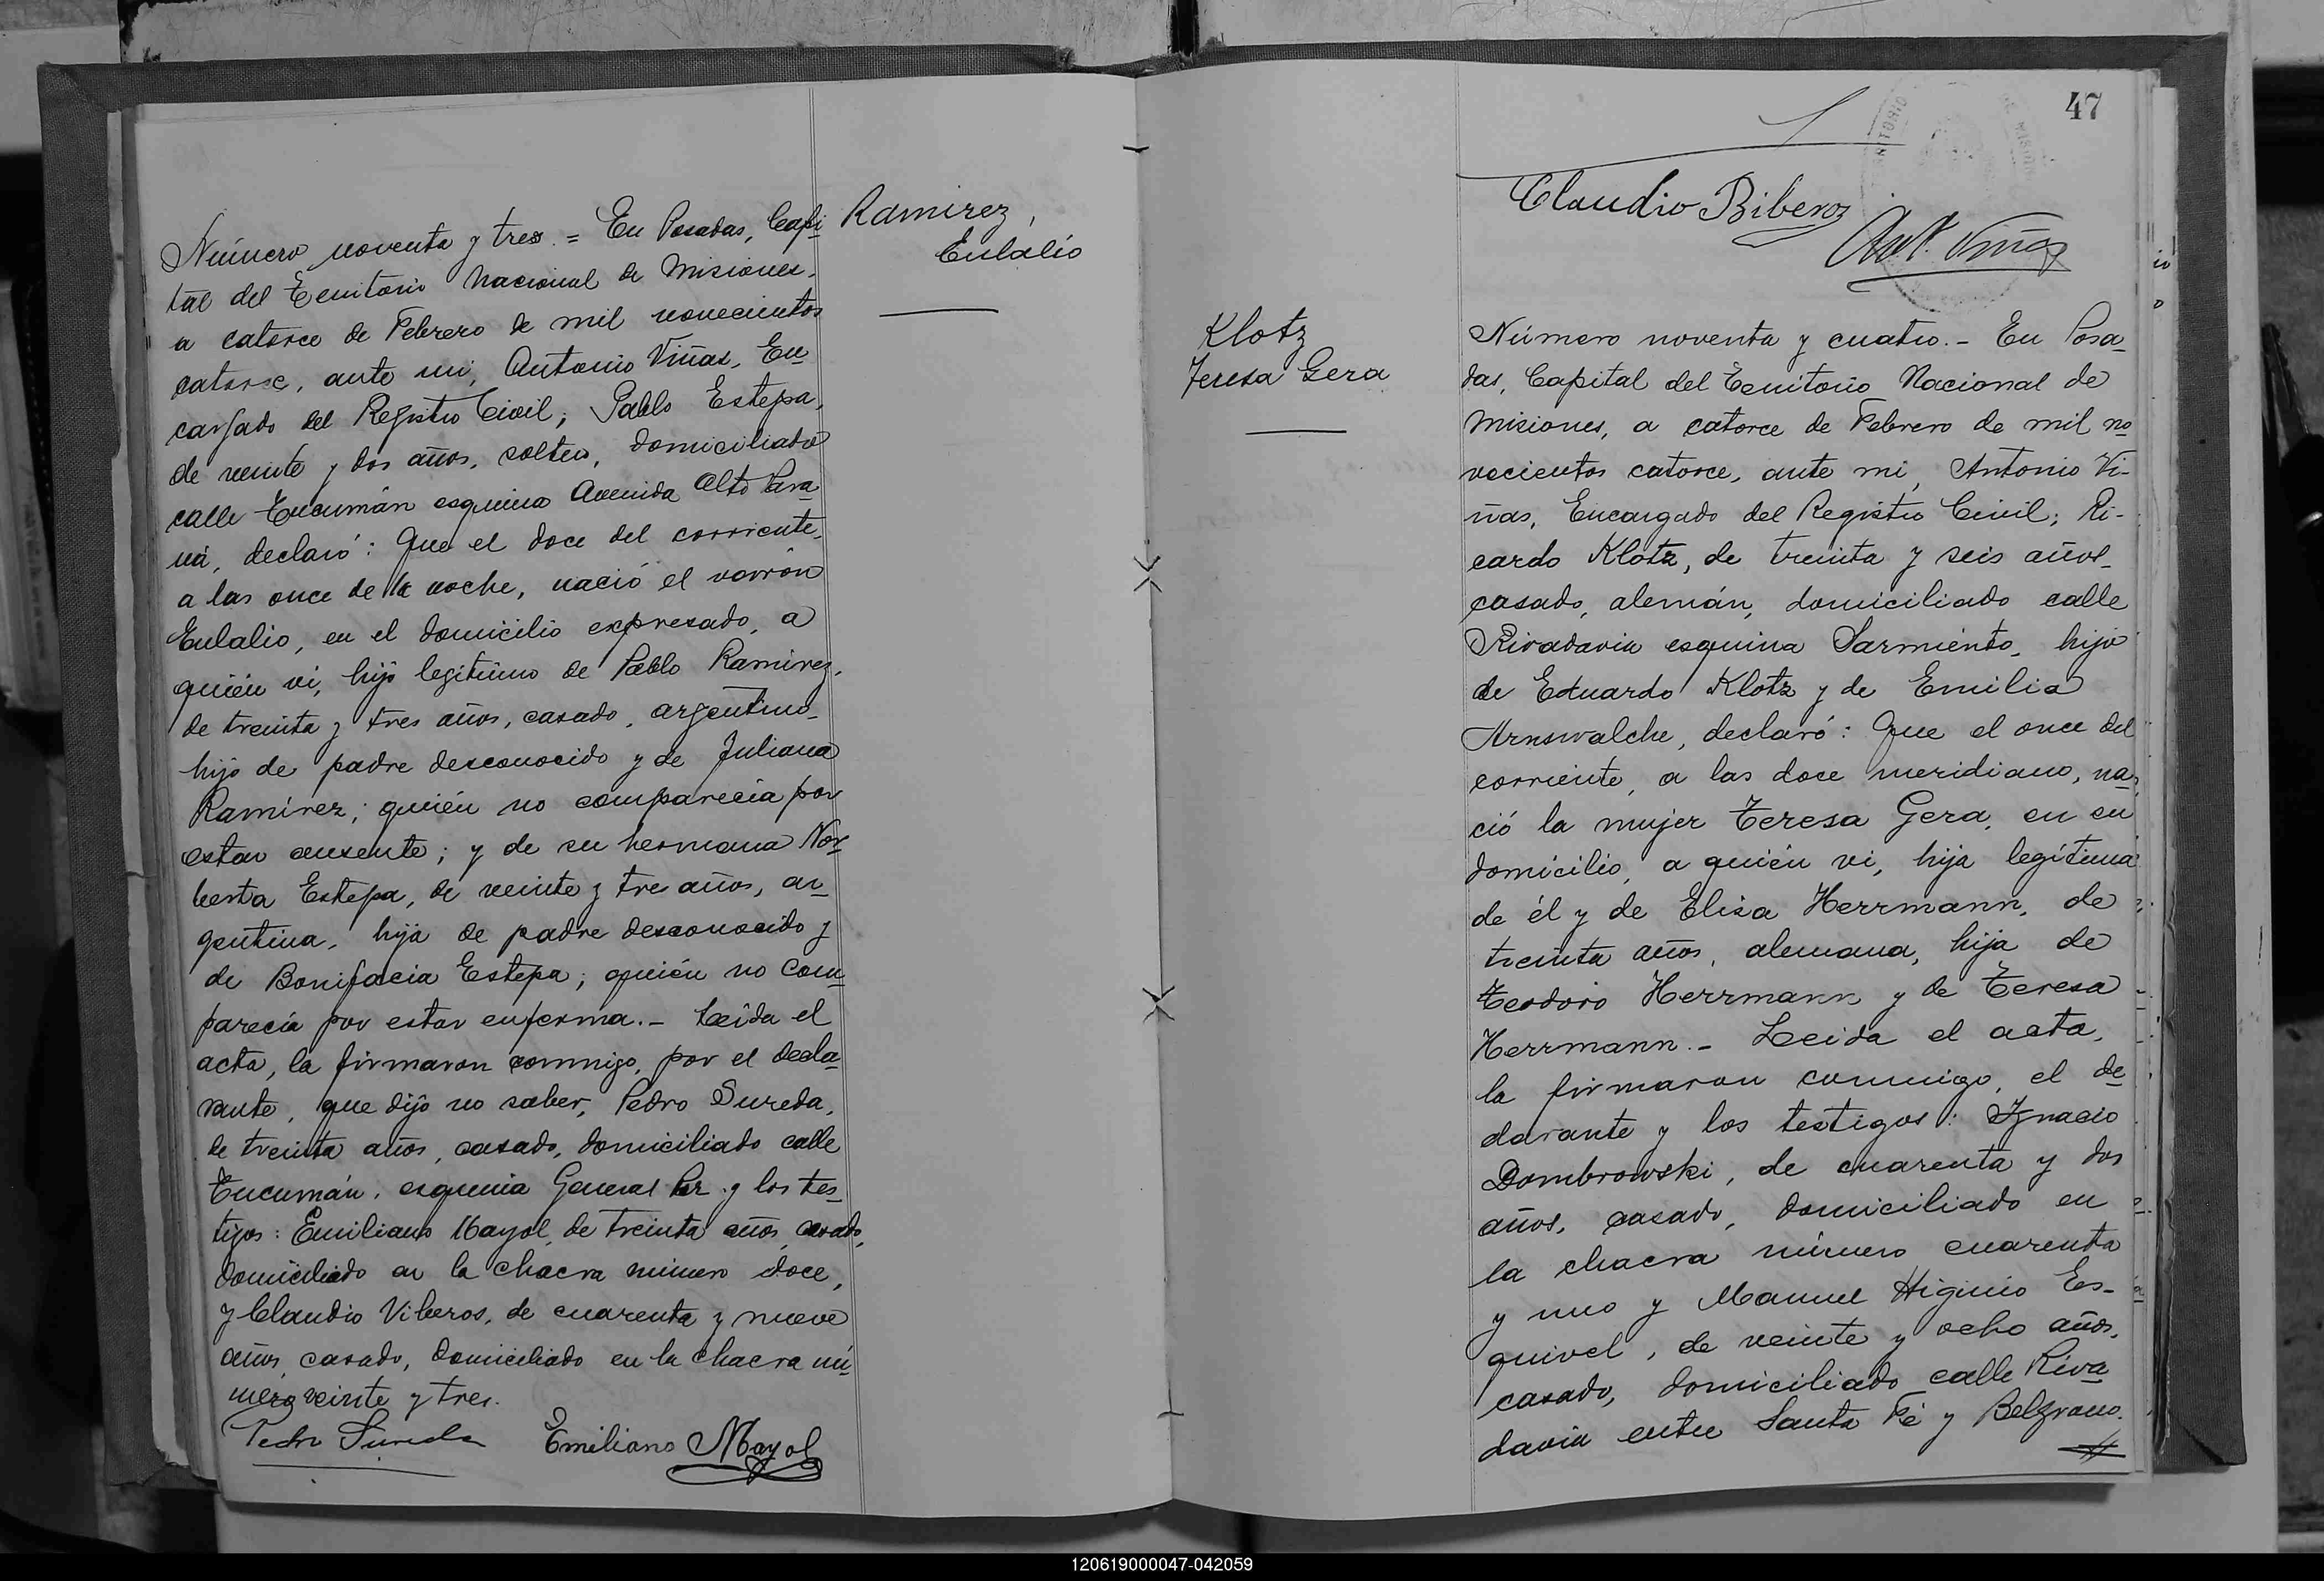 Ramirez,
Eulalio
Número noventa y tres. = En Posadas, Capi-
tal del Territorio Nacional de Misiones,
a catorce de Febrero de mil novecientos
catorce, ante mi, Antonio Viñas, En-
cargado del Registro Civil; Pablo Estepa,
de veinte y dos años, soltero, domiciliado
calle Tucumán esquina Avenida Alto Para-
ná, declaró: Que el doce del corriente,
a las once de la noche, nació el varón
Eulalio, en el domicilio expresado, a
quién vi, hijo legítimo de Pablo Ramirez,
de treinta y tres años, casado, argentino,
hijo de padre desconocido y de Juliana
Ramírez; quién no comparecía por
estar ausente; y de su hermana Nor-
berta Estepa, de veinte y tre años, ar-
gentina, hija de padre desconocido y
de Bonifacia Estepa; quién no com-
parecía por estar enferma.- Leída el
acta, la firmaron conmigo, por el decla-
rante, que dijo no saber, Pedro Sureda,
de treinta años, casado, domiciliado calle
Tucumán, esquina General Paz y los tes-
tigos: Emiliano Mayol, de treinta años, casado,
domiciliado en la chacra número doce,
y Claudio Viberos, de cuarenta y nueve
años, casado, domiciliado en la chacra nú-
mero veinte y tres.
Pedro Sureda Emiliano Mayol
47
Claudio Biberos
Ant. Viñas
Klotz
Teresa Gera
Número noventa y cuatro.- En Posa-
das, Capital del Territorio Nacional de
Misiones, a catorce de Febrero de mil no-
vecientos catorce, ante mi, Antonio Vi-
ñas, Encargado del Registro Civil; Ri-
cardo Klotz, de treinta y seis años,
casado, alemán, domiciliado calle
Rivadavia esquina Sarmiento, hijo
de Eduardo Klotz y de Emilia
Arnswalche, declaró: Que el once del
corriente, a las doce meridiano, na-
ció la mujer Teresa Gera, en su
domicilio, a quién vi, hija legítima
de él y de Elisa Herrmann, de
treinta años, alemana, hija de
Teodoro Herrmann y de Teresa
Herrmann.- Leida el acta,
la firmaron conmigo, el de-
clarante y los testigos: Ignacio
Dombrowski, de cuarenta y dos
años, casado, domiciliado en
la chacra número cuarenta
y uno y Manuel Higinio Es-
quivel, de veinte y ocho años,
casado, domiciliado calle Riva-
davia entre Santa Fé y Belgrano.
120619000047-042059